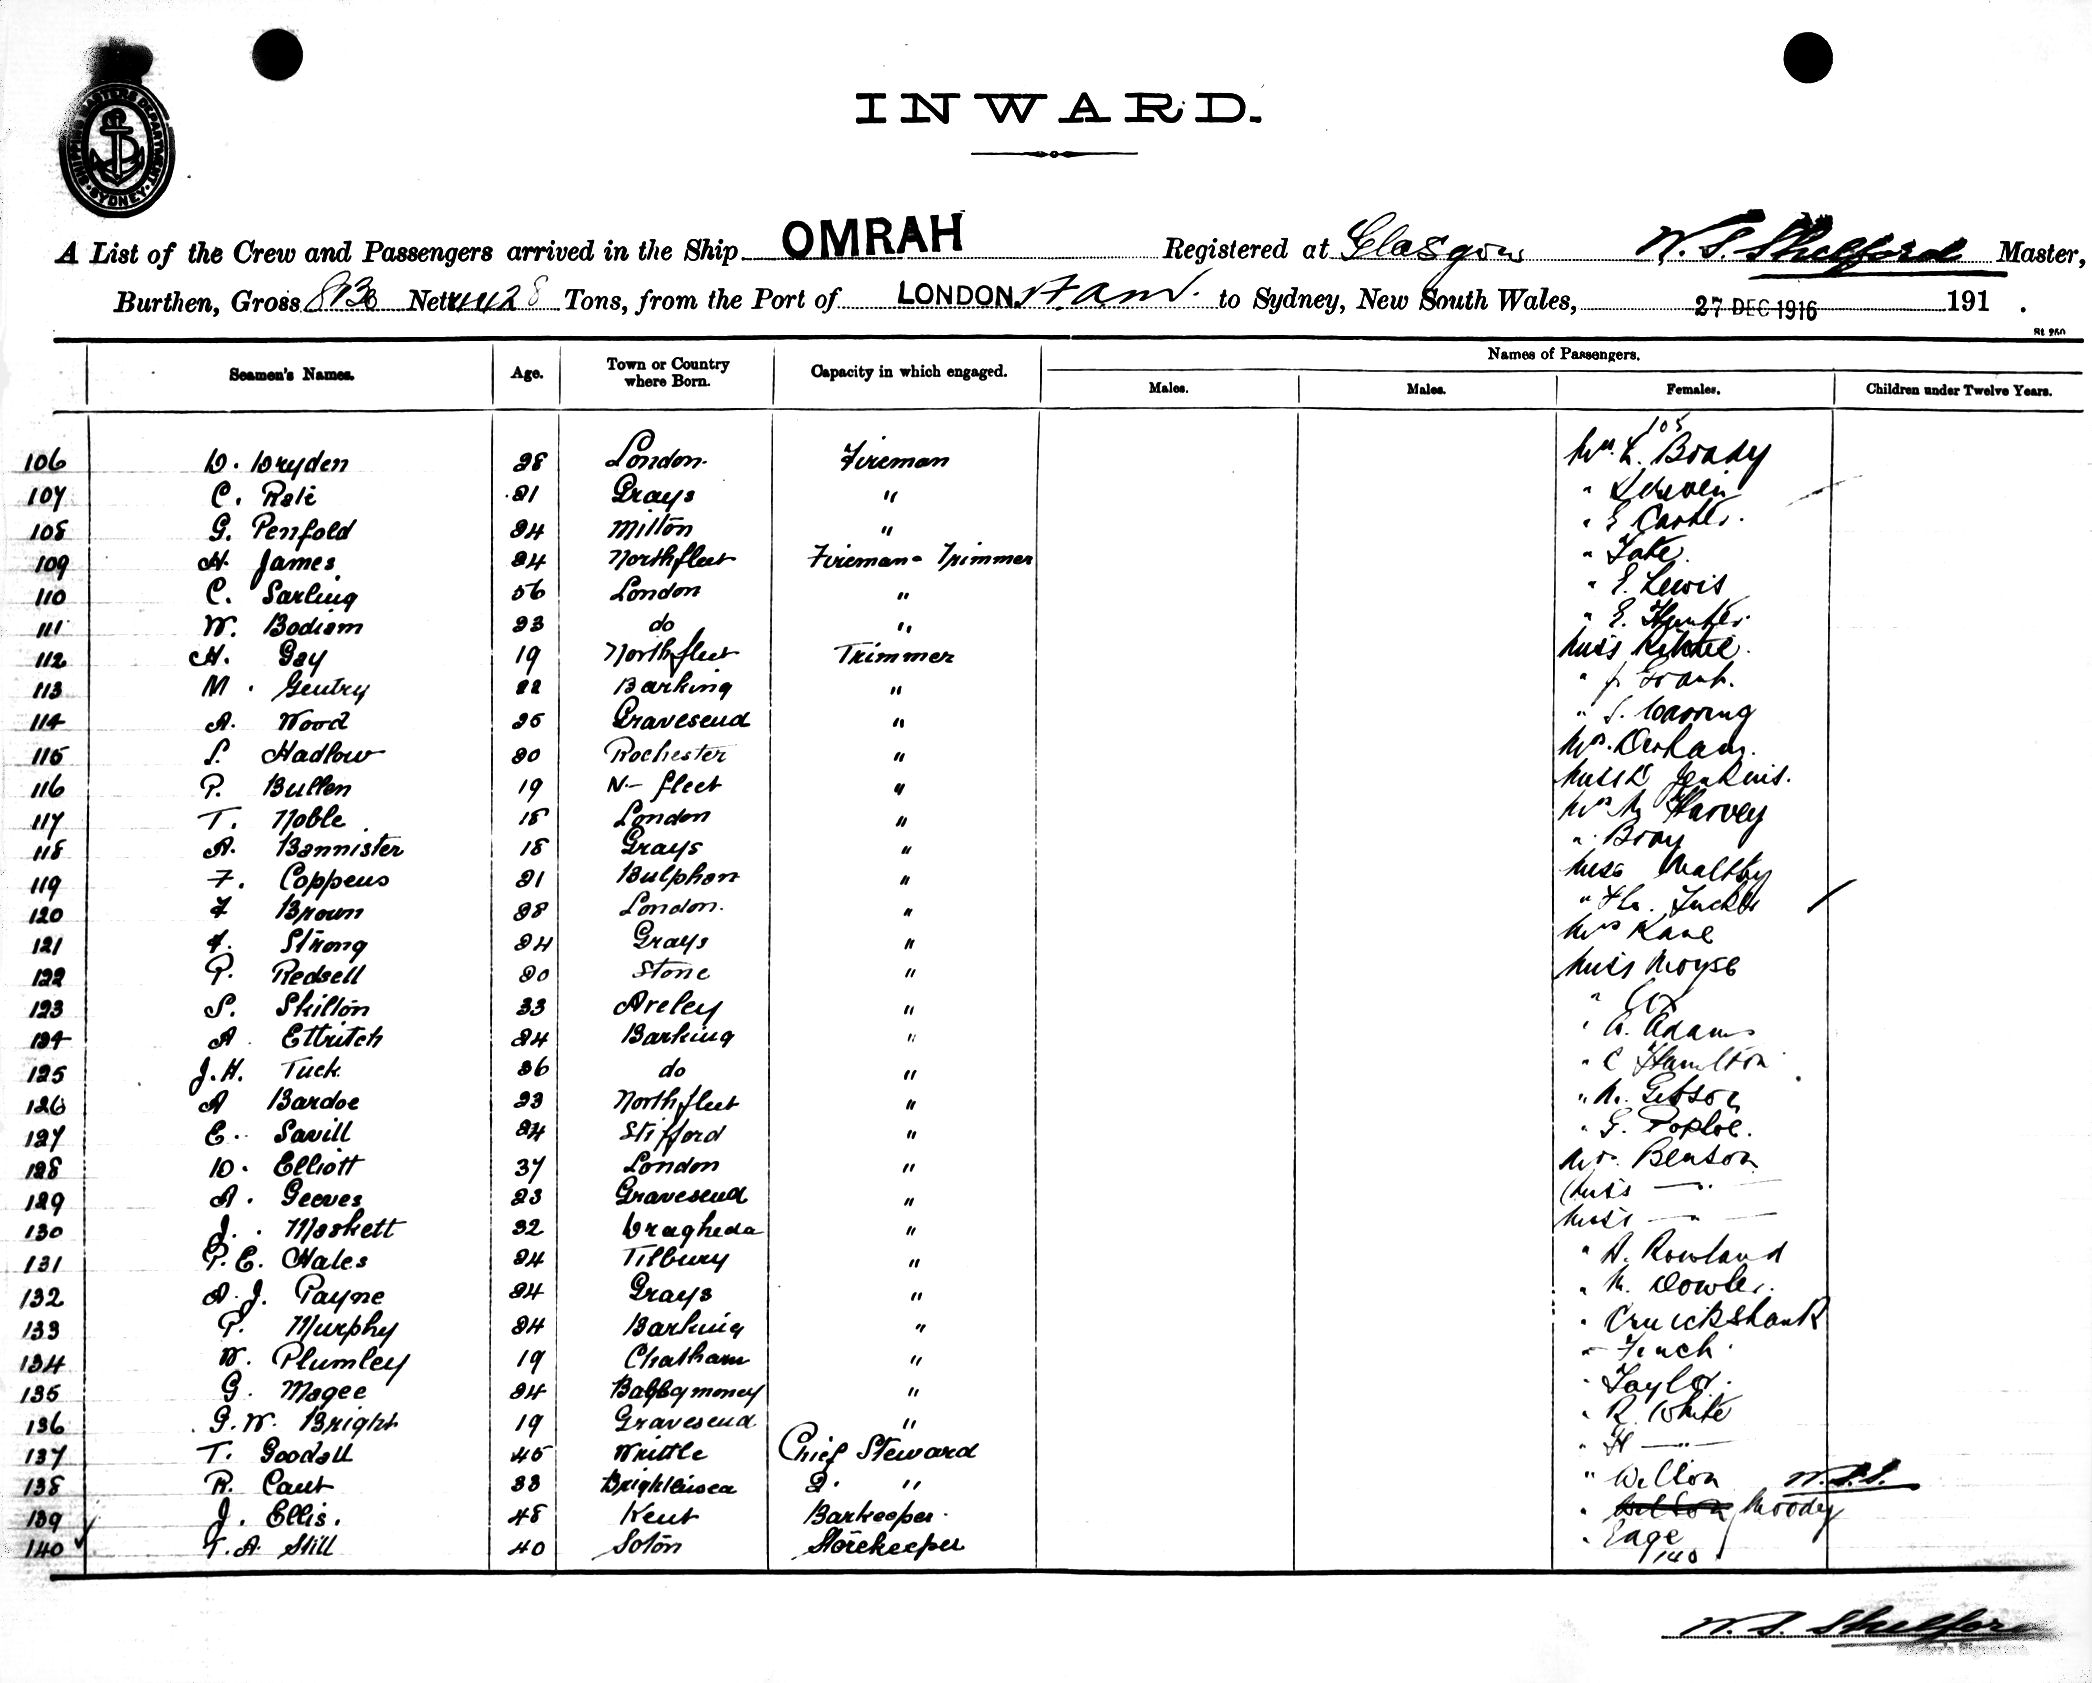 SHIPPING MASTERS DEPARTMENT · SYDNEY ·
INWARD.
A List of the Crew and Passengers arrived in the Ship OMRAH Registered at Glasgow W. S. Shelford Master,
Burthen, Gross Nett Tons, from the Port of LONDON to Sydney, New South Wales, 27 DEC 1916 191 .
Seamen's Names. Age. Town or Country where Born. Capacity in which engaged. Names of Passengers.
Males. Males. Females. Children under Twelve Years.
105
106 D. Dryden 28 London. Fireman Mrs. L. Brady
107 C. 21 Grays "
108 G. Penfold 24 Milton " " E Carter.
109 H. James 24 Northfleet Fireman - Trimmer " Tate
110 C. Sarling 56 London " " E. Lewis
111 W. Bodiam 23 do " " E. Hunter.
112 H. Gay 19 Northfleet Trimmer Miss
113 M. Gentry 22 Barking " " J. Grant.
114 A. Wood 25 Gravesend " " S. Warring
115 S. Hadlow 20 Rochester " Mrs. Derham.
116 P. Bullen 19 N- fleet " Miss Jenkins.
117 T. Noble 18 London " Mrs M Harvey
118 A. Bannister 18 Grays " " Bray
119 F. Coppens 21 Bulphan " Miss Maltby
120 F Brown 28 London. " " Flo. Tucker
121 F. Strong 24 Grays " Mrs Kane
122 P. Redsell 20 Stone " Miss Moyse
123 S. Skilton 33 Areley " " Cox
124 A Ettritch 24 Barking " " A. Adams
125 J.H. Tuck 26 do " " C Hamilton
126 A Bardoe 23 Northfleet " " M. Gibson
127 E. Savill 24 Stifford " " G.
128 D. Elliott 37 London " Mrs. Benson
129 A. Geeves 23 Gravesend " Miss — " —
130 J. Moskett 32 Dragheda " Miss — " —
131 P.E. Hales 24 Tilbury " " A. Rowland
132 A.J. Payne 24 Grays " " M. Dowler.
133 P. Murphy 24 Barking " " Cruickshank
134 W. Plumley 19 Chatham " " Finch
135 G. Magee 24 Ballymoney " " Taylor.
136 G.W. Bright 19 Gravesend " " R. White
137 T. Goodall 45 Writtle Chief Steward " H — " —
138 R. Cant 33 Brightlinsea 2. " " Wilton W.S.S.
139 J. Ellis. 48 Kent Barkeeper. " Wilton Moody
140 T.A. Still 40 Soton Storekeeper " Eage
140
W. S. Shelford